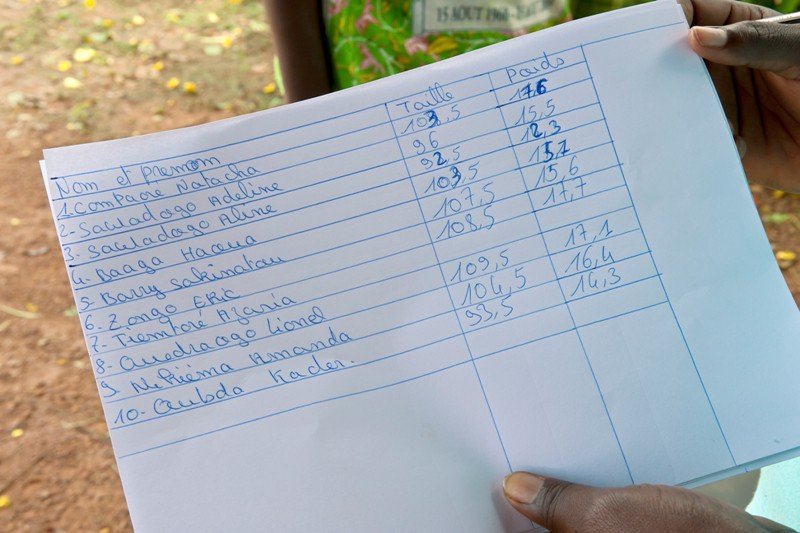 15 AOUT 1960
Nom et prenom Taille Poids
1. Compaoré Natacha 103,5 17,6
2- Sawadogo Adeline 96 15,5
3- Sawadogo Aline 92,5 12,3
4. Haoua 103,5 15,7
5. Barry Sakinatou 107,5 15,6
6. Zongo Eric 108,5 17,7
7- Tiemtoré Azaria
8- Ouedraogo Lionel 109,5 17,1
9. Nikiéma Amanda 104,5 16,4
10- Oubda Kader. 93,5 14,3